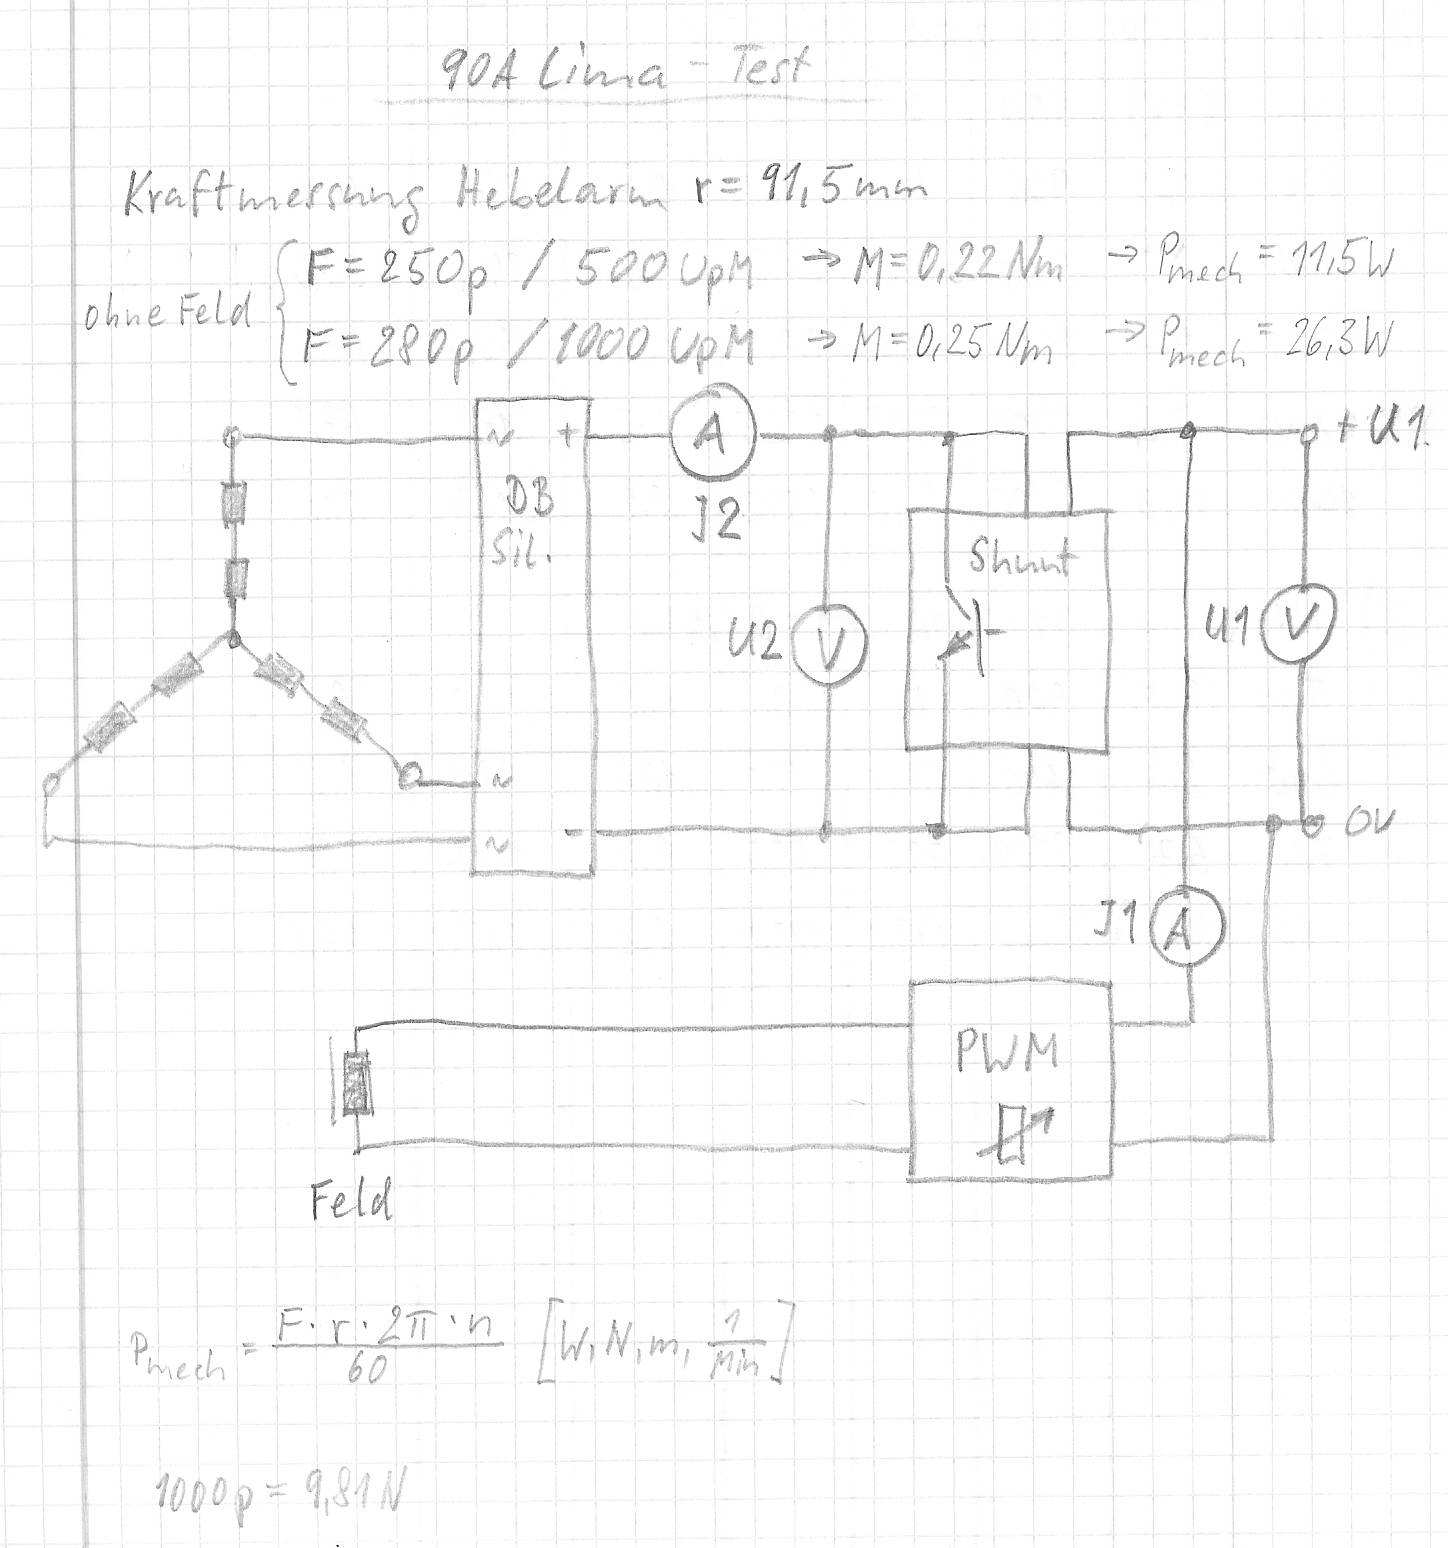 90A Lima-Test
Kraftmessung Hebelarm r = 91,5mm
ohne Feld
F = 250p / 500 UpM → M = 0,22 Nm → Pmech = 11,5W
F = 280p / 1000 UpM → M = 0,25 Nm → Pmech = 26,3W
~ +
A
+U1.
DB
Sil.
J2
Shunt
U2 V
U1 V
~
~ -
0V
J1 A
PWM
Feld
Pmech = F · r · 2π · n / 60 [W, N, m, 1/Min]
1000p = 9,81N